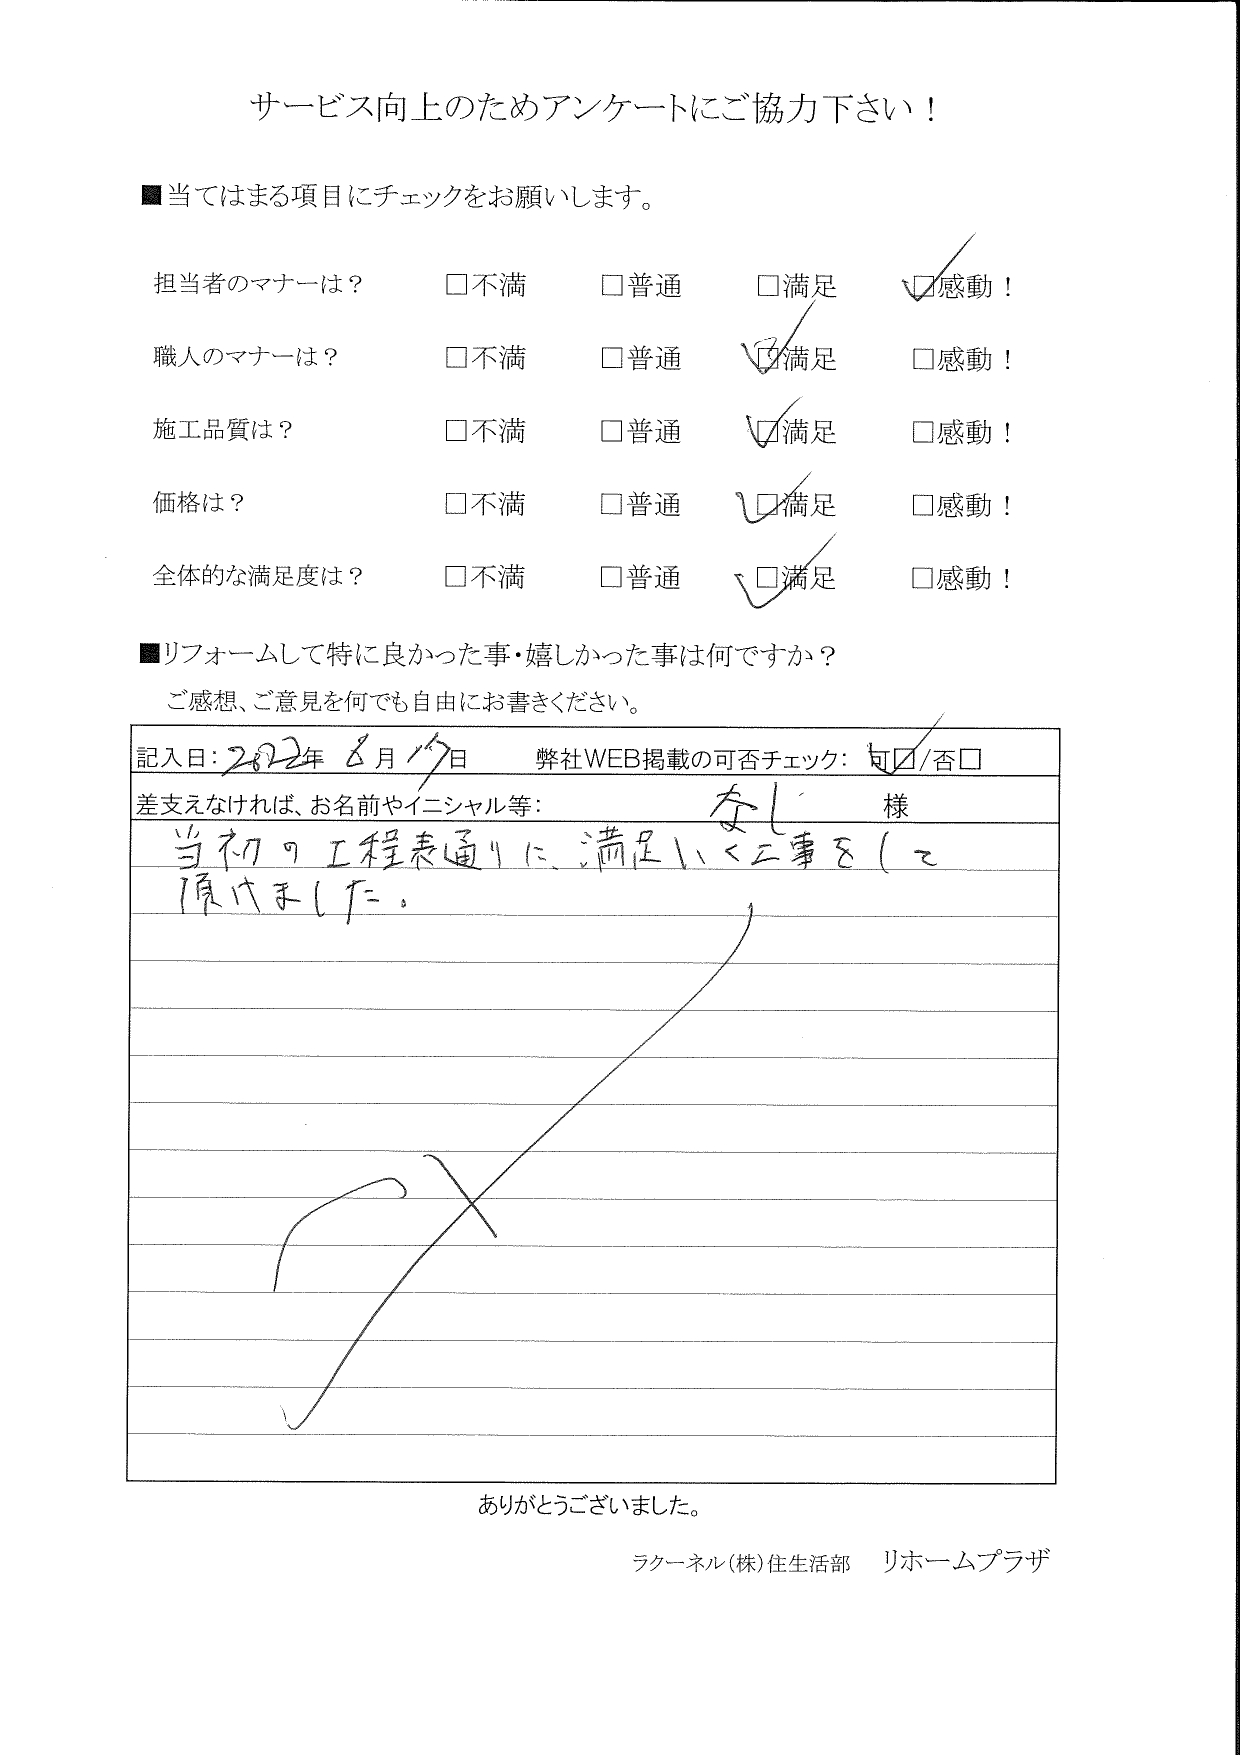 サービス向上のためアンケートにご協力下さい！
■当てはまる項目にチェックをお願いします。
担当者のマナーは？ □不満 □普通 □満足 ☑感動！
職人のマナーは？ □不満 □普通 ☑満足 □感動！
施工品質は？ □不満 □普通 ☑満足 □感動！
価格は？ □不満 □普通 ☑満足 □感動！
全体的な満足度は？ □不満 □普通 ☑満足 □感動！
■リフォームして特に良かった事・嬉しかった事は何ですか？
ご感想、ご意見を何でも自由にお書きください。
記入日：2022年 8月 17日 弊社WEB掲載の可否チェック： 可☑/否□
差支えなければ、お名前やイニシャル等： なし 様
当初の工程表通りに、満足いく工事をして
頂けました。
ありがとうございました。
ラクーネル（株）住生活部 リホームプラザ